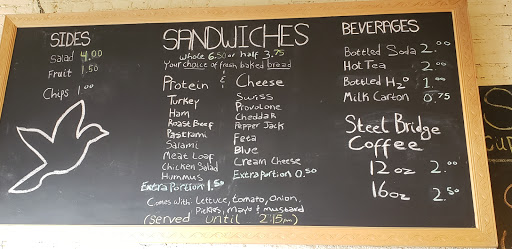 SIDES
Salad 4.00
Fruit 1.50
Chips 1.00
SANDWICHES
Whole 6.50 or half 3.75
Your choice of fresh baked bread
Protein
Turkey
Ham
Roast Beef
Pastrami
Salami
Meat Loaf
Chicken Salad
Hummus
Extra Portion 1.50
Cheese
Swiss
Provolone
Cheddar
Pepper Jack
Feta
Blue
Cream Cheese
Extra portion 0.50
Comes with: Lettuce, tomato, onion,
Pickles, mayo + mustard
(Served until 2:15pm)
BEVERAGES
Bottled Soda 2.00
Hot Tea 2.00
Bottled H2O 1.00
Milk Carton 0.75
Steel Bridge
Coffee
12 oz 2.00
16 oz 2.50